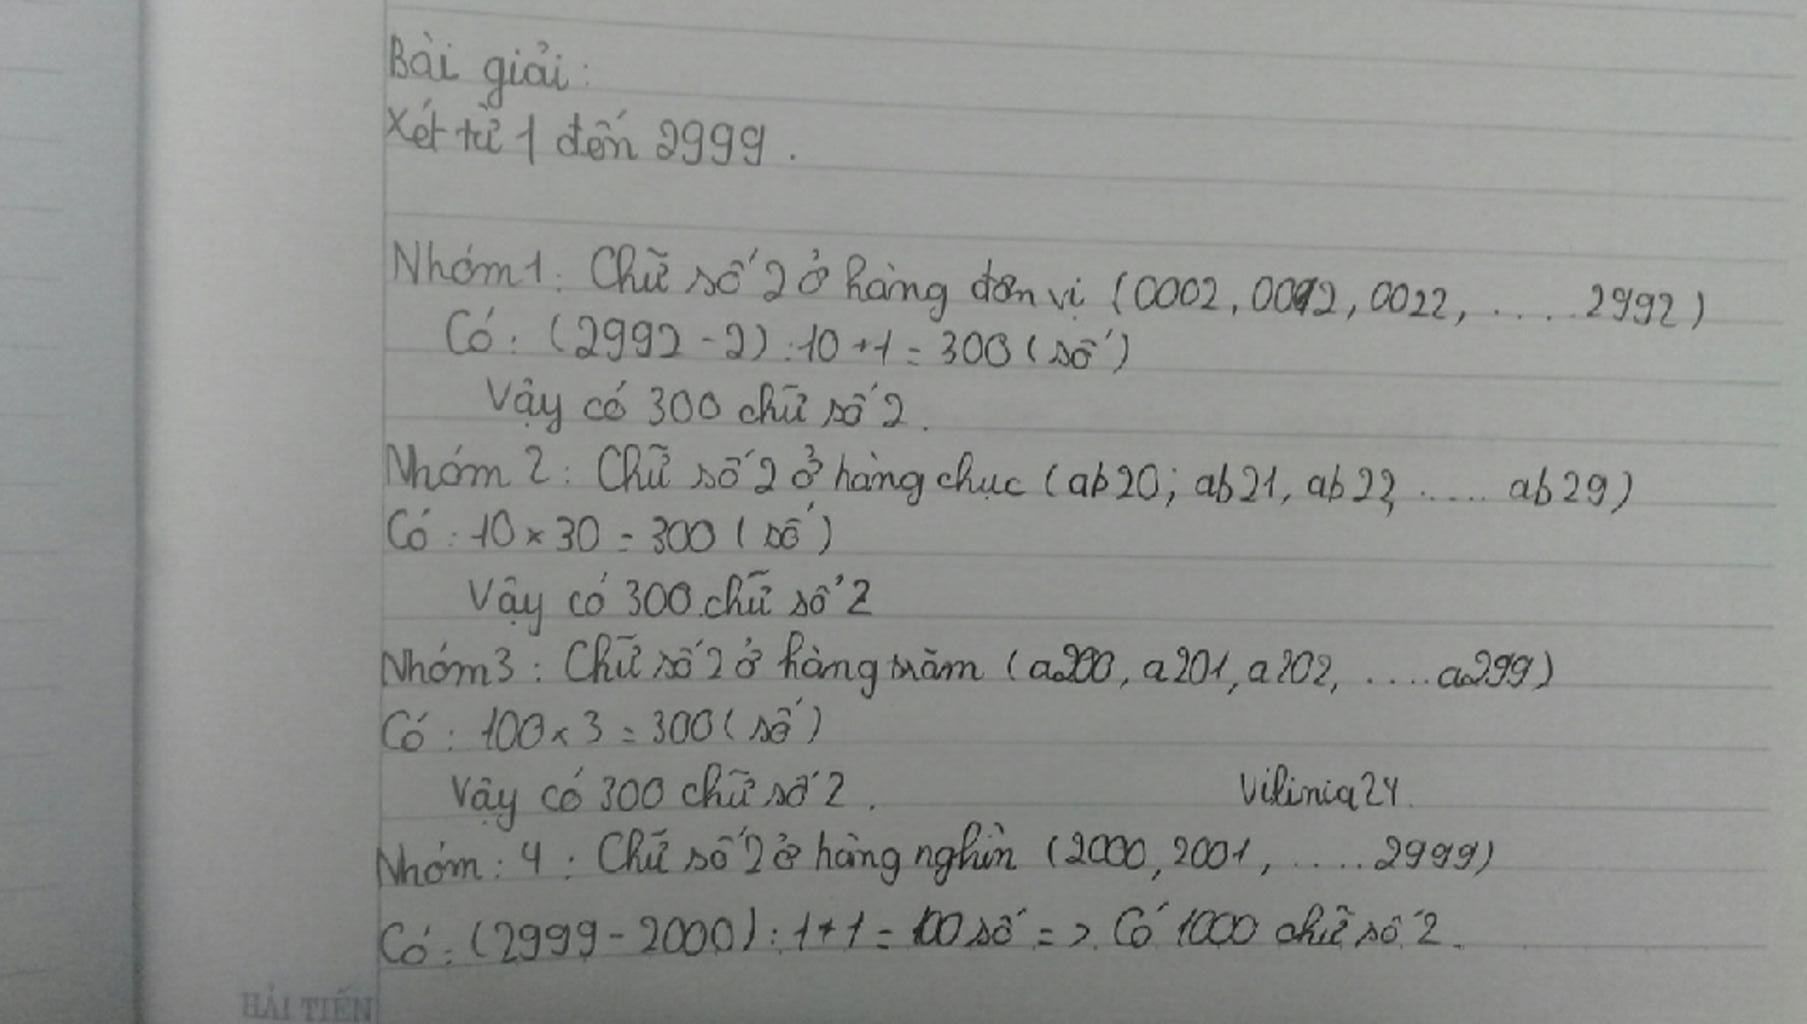 Bài giải:
Xét từ 1 đến 2999.
Nhóm 1: Chữ số 2 ở hàng đơn vị (0002, 0012, 0022, .... 2992)
Có: (2992 - 2) : 10 + 1 = 300 (số)
Vậy có 300 chữ số 2.
Nhóm 2: Chữ số 2 ở hàng chục (ab20; ab21, ab22, .... ab29)
Có: 10 x 30 = 300 (số)
Vậy có 300 chữ số 2
Nhóm 3: Chữ số 2 ở hàng trăm (a200, a201, a202, .... a299)
Có: 100 x 3 = 300 (số)
Vậy có 300 chữ số 2.
Vilinia24.
Nhóm: 4: Chữ số 2 ở hàng nghìn (2000, 2001, .... 2999)
Có: (2999 - 2000) : 1 + 1 = 100 số => Có 1000 chữ số 2.
HẢI TIẾN